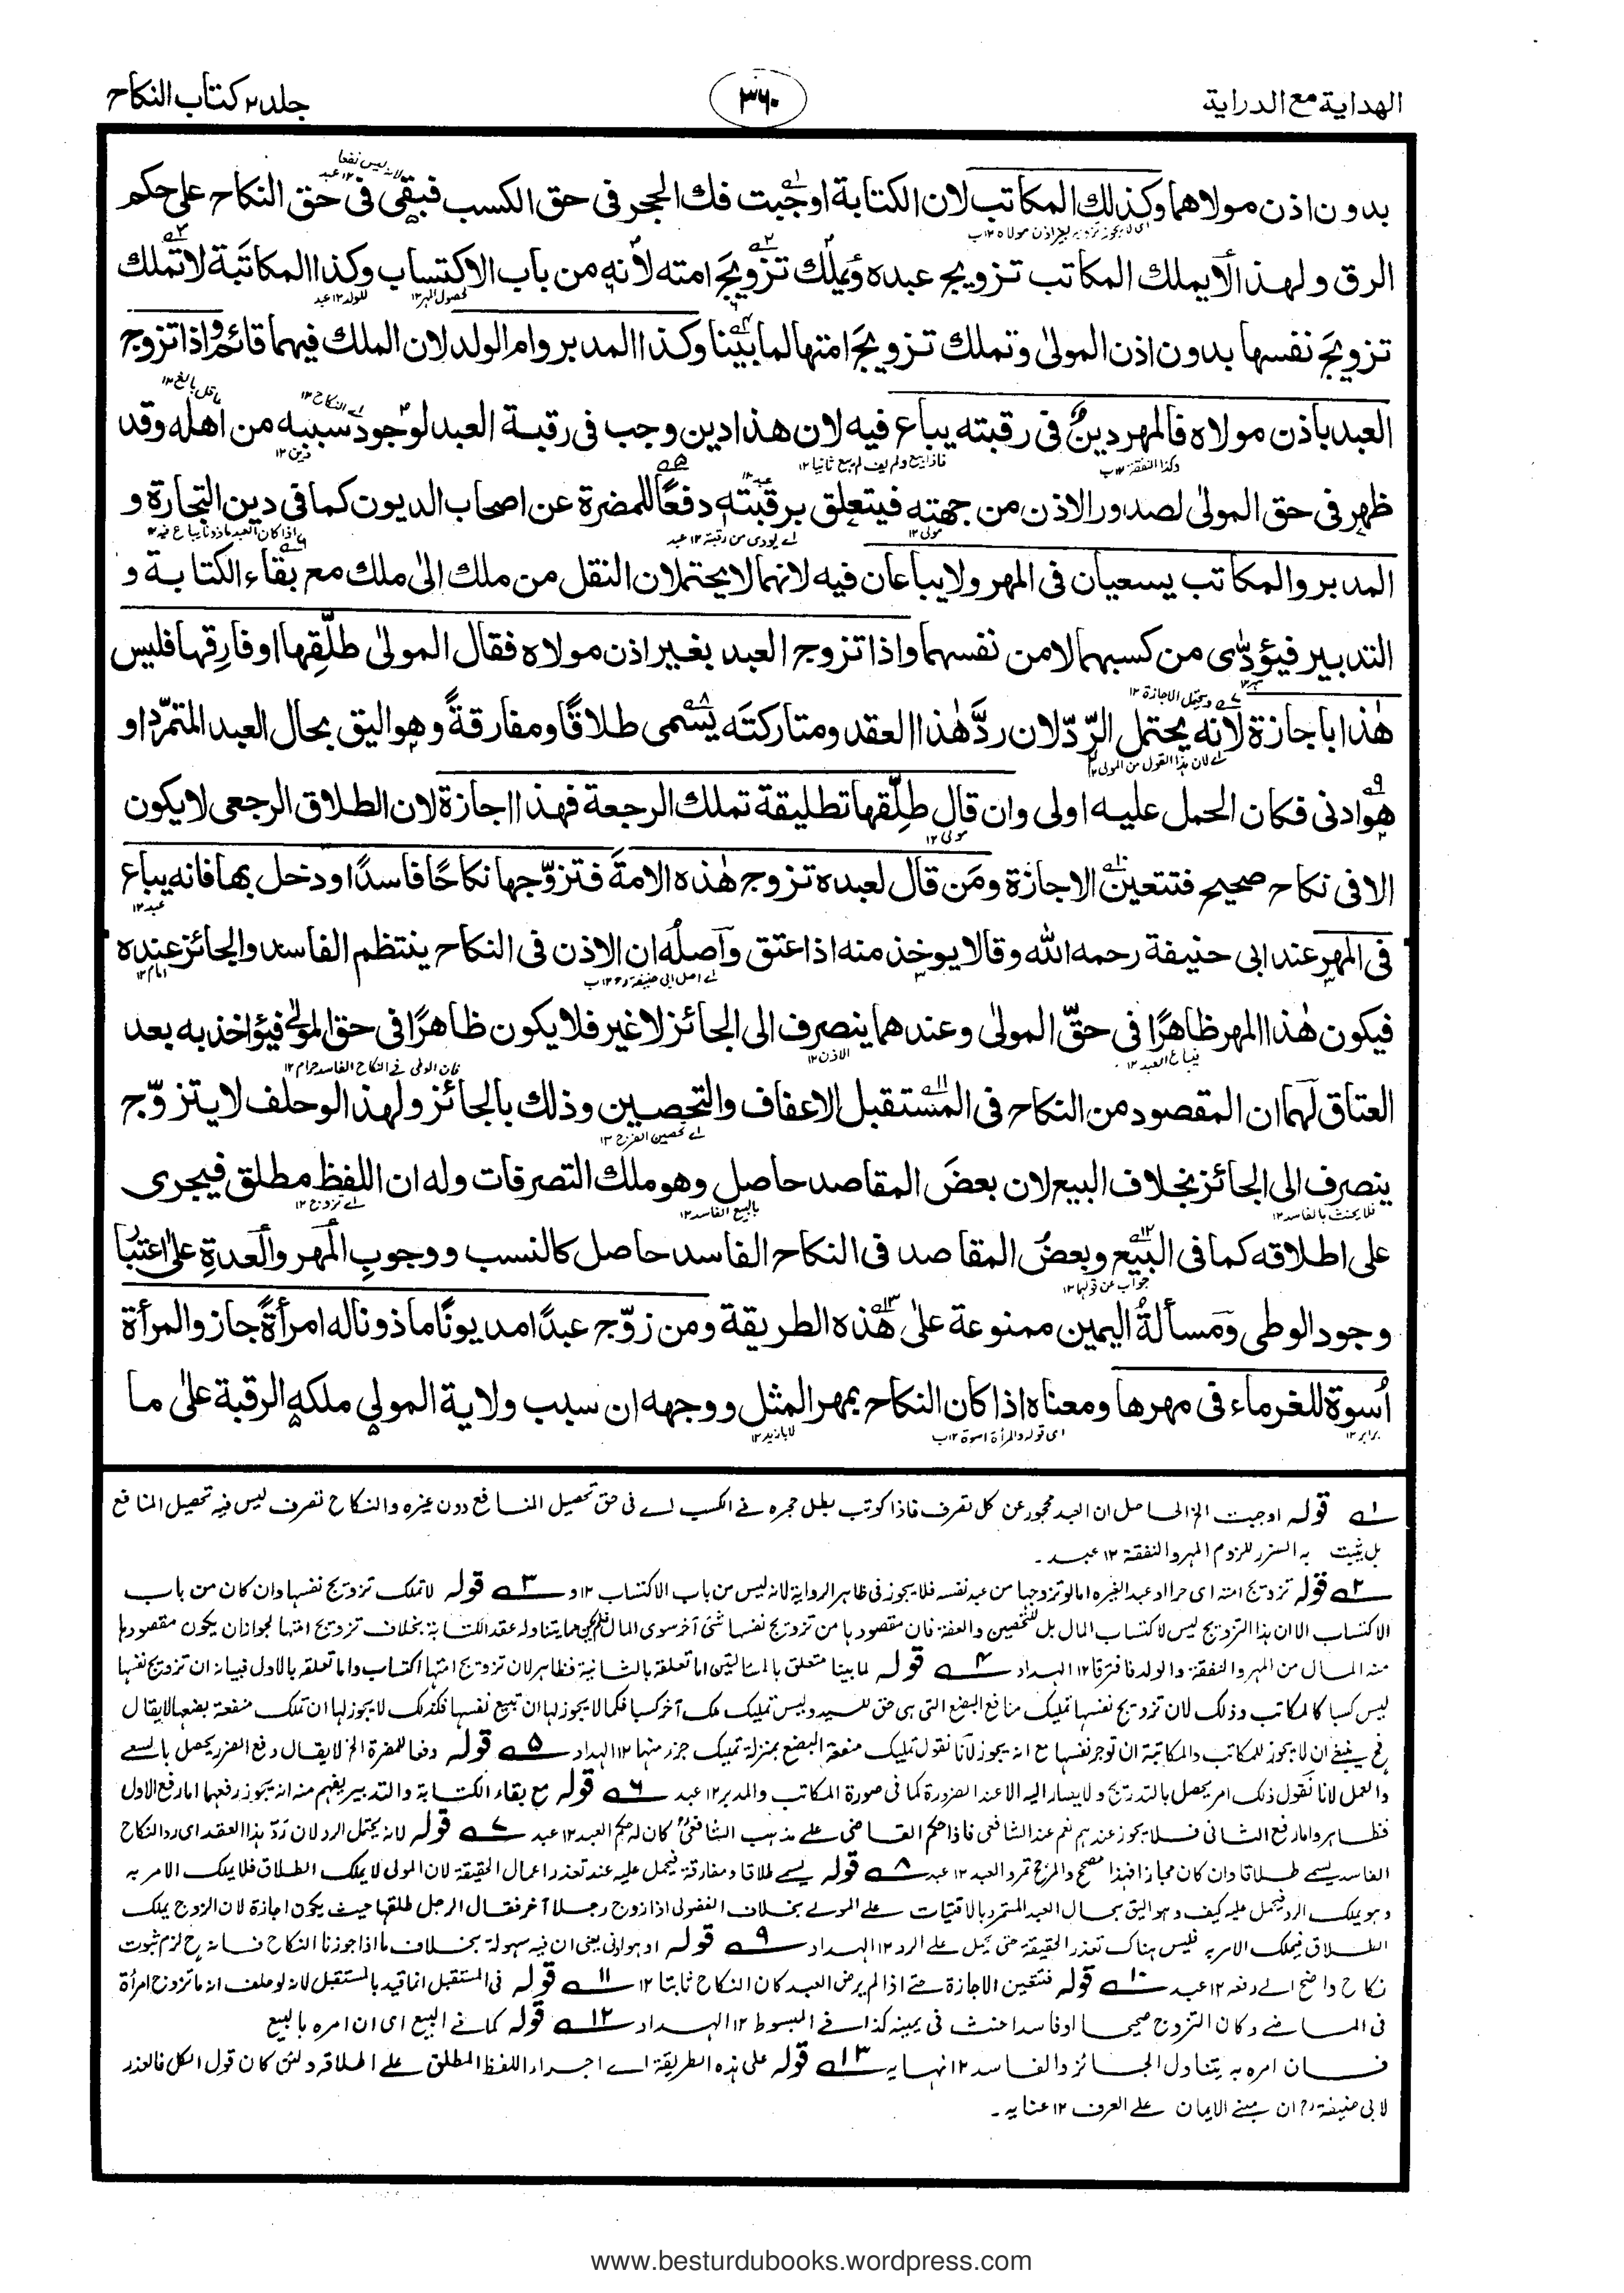 الهداية مع الدراية
۳۶۰
جلد۲ كتاب النكاح
بدون اذن مولاهما وكذلك المكاتب لان الكتابة اوجبت فك الحجر فى حق الكسب فبقى فى حق النكاح على حكم
الرق ولهذا لايملك المكاتب تزويج عبده ويملك تزويجَ امته لانه من باب الاكتساب وكذا المكاتبة لاتملك
تزويجَ نفسها بدون اذن المولىٰ وتملك تزويجَ امتها لما بينا وكذا المدبر وام الولد لان الملك فيهما قائم واذا تزوج
العبد باذن مولاه فالمهر دينٌ فى رقبته يباع فيه لان هذا دين وجب فى رقبة العبد لوجود سببه من اهله وقد
ظهر فى حق المولىٰ لصدور الاذن من جهته فيتعلق برقبته دفعًا للمضرة عن اصحاب الديون كما فى دين التجارة و
المدبر والمكاتب يسعيان فى المهر ولايباعان فيه لانهما لايحتملان النقل من ملك الىٰ ملك مع بقاء الكتابة و
التدبير فيؤدّى من كسبهما لا من نفسهما واذا تزوج العبد بغير اذن مولاه فقال المولىٰ طلّقها او فارِقها فليس
هٰذا باجازة لانه يحتمل الرّدّ لان ردَّ هٰذا العقد ومتاركتَه يسمى طلاقًا ومفارقةً وهو اليق بحال العبد المتمرّد او
هو ادنى فكان الحمل عليه اولى وان قال طلِّقها تطليقة تملك الرجعة فهذا اجازة لان الطلاق الرجعى لايكون
الا فى نكاح صحيح فتتعين الاجازة ومَن قال لعبده تزوج هٰذه الامةَ فتزوّجها نكاحًا فاسدًا ودخل بها فانه يباع
فى المهر عند ابى حنيفة رحمه الله وقالا يوخذ منه اذا عتق وآصله ان الاذن فى النكاح ينتظم الفاسد والجائز عنده
فيكون هٰذا المهر ظاهرًا فى حقّ المولىٰ وعندهما ينصرف الى الجائز لاغير فلايكون ظاهرًا فى حق المولىٰ فيؤاخذ به بعد
العتاق لهما ان المقصود من النكاح فى المستقبل الاعفاف والتحصين وذلك بالجائز ولهذا لو حلف لايتزوّج
ينصرف الى الجائز بخلاف البيع لان بعضَ المقاصد حاصل وهو ملك التصرفات وله ان اللفظ مطلق فيجرى
على اطلاقه كما فى البيع وبعضُ المقاصد فى النكاح الفاسد حاصل كالنسب ووجوبِ المهر والعدةِ على اعتبا
وجود الوطى ومَسألةُ اليمين ممنوعة علىٰ هٰذه الطريقة ومن زوّج عبدًا مديونًا ماذونا له امرأةً جاز والمرأة
اُسوة للغرماء فى مهرها ومعناه اذا كان النكاح بمهر المثل ووجهه ان سبب ولاية المولى ملكه الرقبة علىٰ ما
۱ قوله اوجبت الخ الحاصل ان العبد محجور عن كل تصرف فاذا كوتب بطل حجره فے الكسب اے فى حق تحصيل المنافع دون غيره والنكاح تصرف ليس فيه تحصيل المنافع
بل يثبت به الضرر للزوم المهر والنفقة ۱۲ عبد۔
۲ قوله تزويج امته اى حرا او عبد الغيره اما لو تزوجها من عبد نفسه فلا يجوز فى ظاهر الرواية لانه ليس من باب الاكتساب ۱۲ و ۳ قوله لاتملك تزويج نفسها وان كان من باب
الاكتساب الا ان هذا التزويج ليس لاكتساب المال بل للتحصين والعفة فان مقصودها من تزويج نفسها شئ آخر سوى المال فلم يكن مما يتناوله عقد الكتابة بخلاف تزويج امتها لجواز ان يكون مقصودها
منه المال من المهر والنفقة والولد فافترقا ۱۲ الهداد ۴ قوله لما بينا متعلق بالمسألتين اما تعلقه بالثانية فظاهر لان تزويج امتها اكتساب واما تعلقه بالاول فبيانه ان تزويج نفسها
ليس كسبا كالمكاتب وذلك لان تزويج نفسها تمليك منافع البضع التى هى حق للسيد وليس تمليك ملك آخر كسبا فكما لايجوز لها ان تبيع نفسها فكذلك لايجوز لها ان تملك منفعة بضعها لايقال
فح ينبغى ان لايجوز للمكاتب والمكاتبة ان توجر نفسها مع انه يجوز لانا نقول تمليك منفعة البضع بمنزلة تمليك جزء منها ۱۲ الهداد ۵ قوله دفعا للمضرة الخ لايقال دفع الضرر يحصل بالسعے
والعمل لانا نقول ذلك امر يحصل بالتدريج ولايصار اليه الا عند الضرورة كما فى صورة المكاتب والمدبر ۱۲ عبد ۶ قوله مع بقاء الكتابة والتدبير يفهم منه انه يجوز رفعهما اما رفع الاول
فظاهر واما رفع الثانى فلا يجوز عندهم نعم عند الشافعى فاذا حكم القاضى علے مذهب الشافعى كان له حكم العبد ۱۲ عبد ۷ قوله لانه يحتمل الرد لان ردّ هذا العقد اى رد النكاح
الفاسد يسمے طلاقا وان كان مجازا فهذا مصحح والمرجح تمرد العبد ۱۲ عبد ۸ قوله يسمے طلاقا ومفارقة فيحمل عليه عند تعذر اعمال الحقيقة لان المولى لا يملك الطلاق فلا يملك الامر به
وهو يملك الرد فيحمل عليه كيف وهو اليق بحال العبد المتمرد بالافتيات علے المولے بخلاف الفضولى اذا زوج رجلا آخر فقال الرجل طلقها حيث يكون اجازة لان الزوج يملك
الطلاق فيملك الامر به فليس هناك تعذر الحقيقة حتى يحمل علے الرد ۱۲ الهداد ۹ قوله او هو ادنى يعنى ان فيه سهولة بخلاف ما اذا جوزنا النكاح فانه ح لزم ثبوت
نكاح واضح الے دفعه ۱۲ عبد ۱۰ قوله فتتعين الاجازة حتے اذا لم يرض العبد كان النكاح ثابتا ۱۲ ۱۱ قوله فى المستقبل انما قيد بالمستقبل لانه لو حلف انه ما تزوج امرأة
فى الماضے وكان التزوج صحيحا او فاسدا حنث فى يمينه كذا فے المبسوط ۱۲ الهداد ۱۲ قوله كما فے البيع اى ان امره بالبيع
فان امره به يتناول الجائز والفاسد ۱۲ نهايه ۱۳ قوله على هذه الطريقة اے اجراء اللفظ المطلق علے اطلاقه ولئن كان قول الكل فالعذر
لابى حنيفة رح ان مبنے الايمان علے العرف ۱۲ عنايه۔
www.besturdubooks.wordpress.com